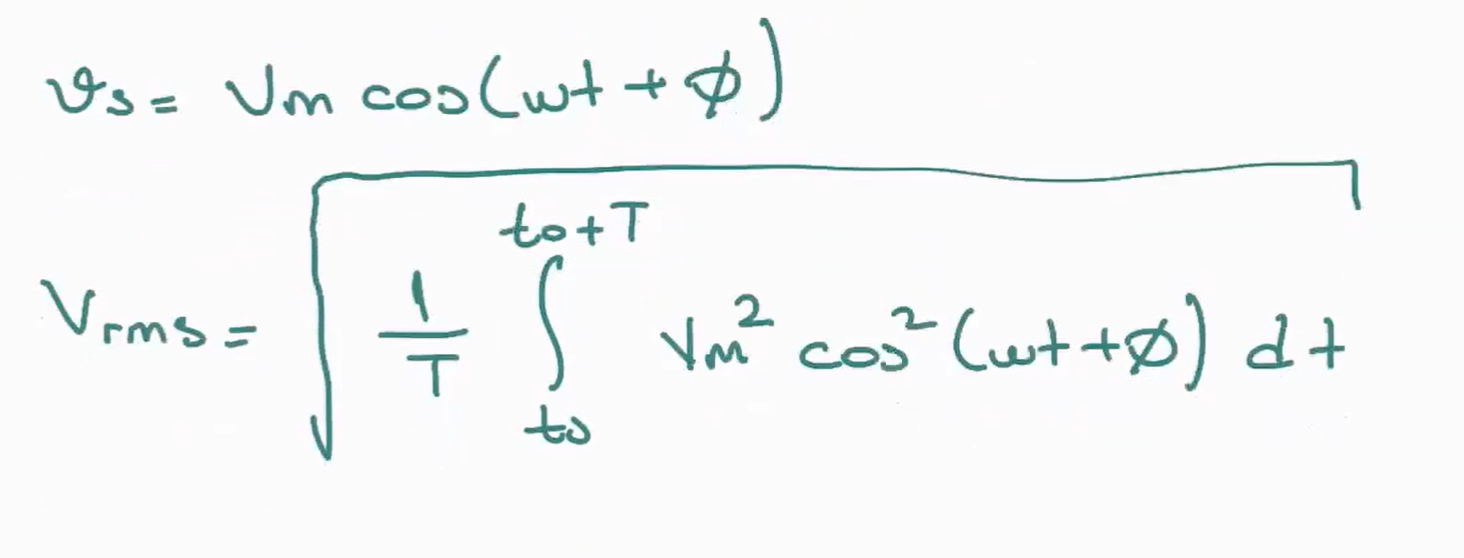 vs = Vm cos(ωt + φ)
Vrms = √( 1/T ∫_{to}^{to+T} Vm² cos²(ωt + φ) dt )